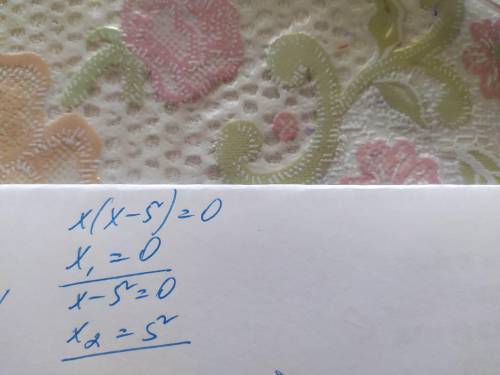 x(x-5)=0
x₁=0
x-5=0
x₂=5